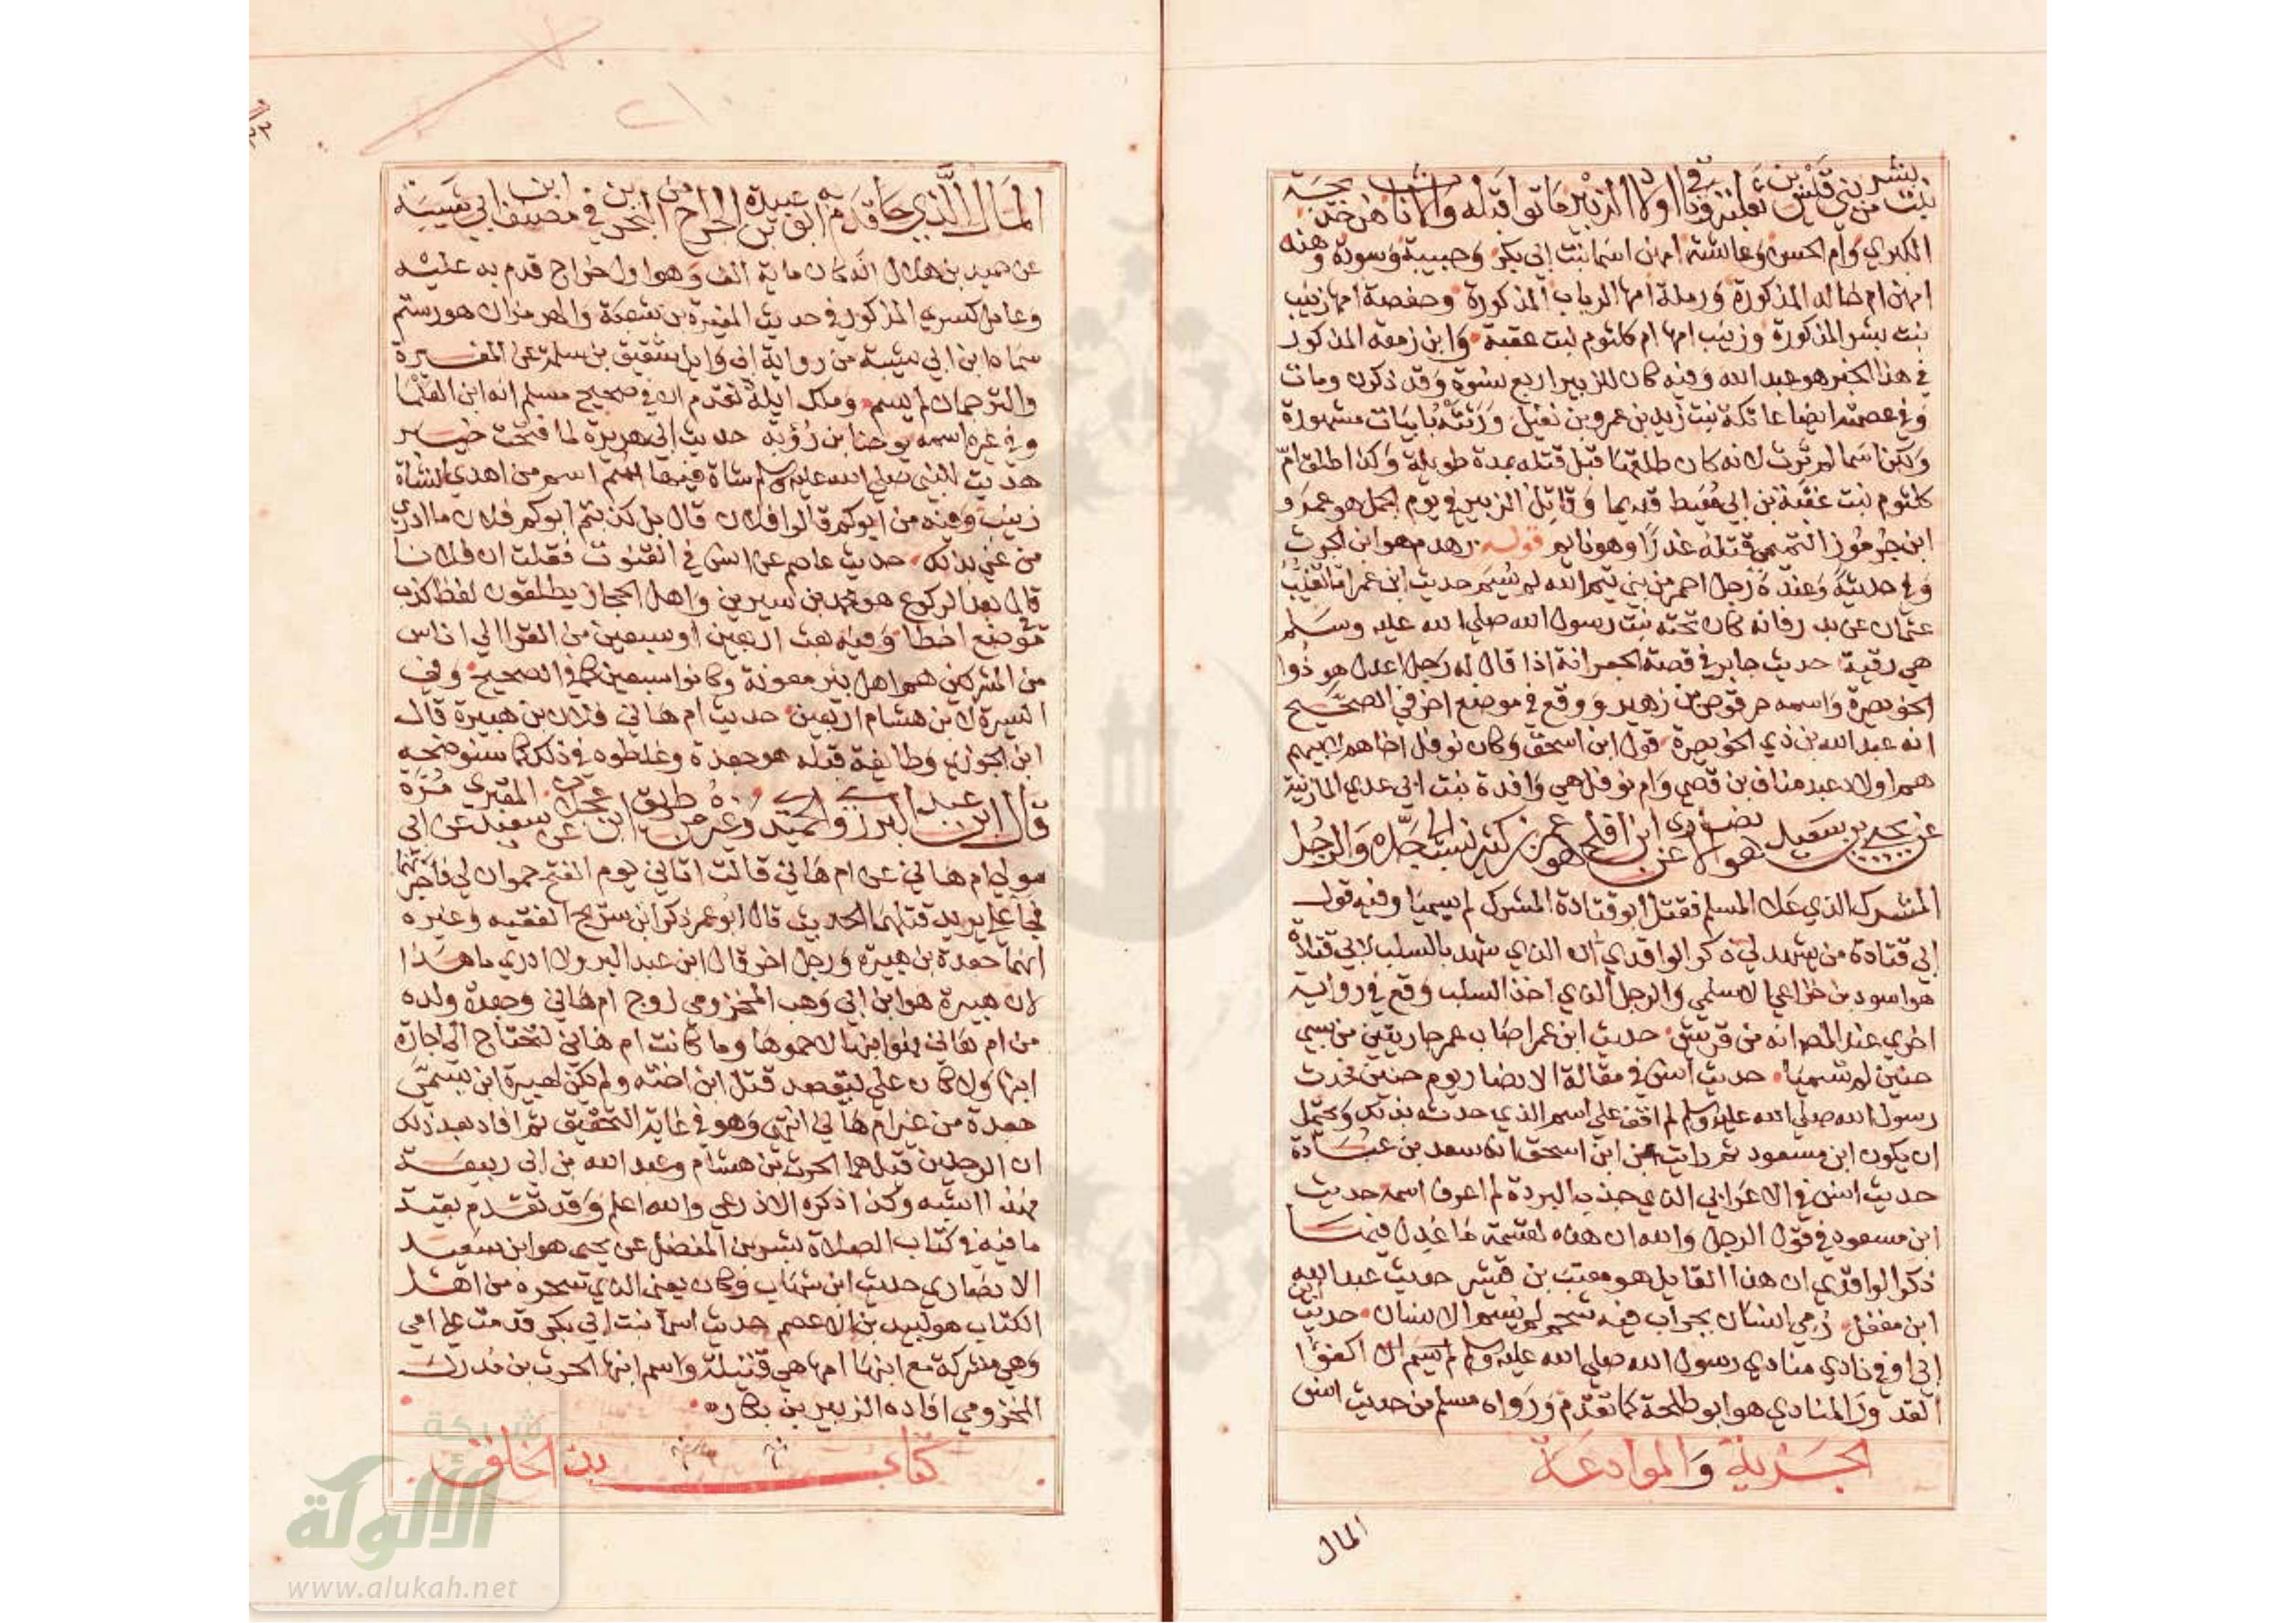 الكبري وام الحسن وعائشة امهن اسما بنت ابي بكر وحبيبة وسودة وهند
امهن ام خالد المذكورة ورملة امها الرباب المذكورة وحفصة امها زينب
بنت بشر المذكورة وزينب امها ام كلثوم بنت عقبة وابن زمعه المذكور
في هذا الخبر هو عبد الله وفيه كان للزبير اربع نسوة وقد ذكرن ومات
وفي عصمته ايضا عاتكة بنت زيد بن عمرو بن نفيل ورثته بابيات مشهورة
ولكن اسما لم ترث لانه كان طلقها قبل قتله بمدة طويلة وكذا طلق ام
كلثوم بنت عقبة بن ابي معيط قديما وقاتل الزبير في يوم الجمل هو عمرو
ابن جرموز التميمي قتله غدرا وهو نايم قوله زهدم هو ابن الحرث
وفي حديثه وعنده رجل احمر من بني تيم الله لم يسم حديث ابن عمر انما تغيب
عثمان عن بدر فانه كان تحته بنت رسول الله صلى الله عليه وسلم
هي رقية حديث جابر في قصة الجعرانة اذ قال له رجل اعدل هو ذوا
الخويصرة واسمه حرقوص بن زهير ووقع في موضع اخر في الصحيح
انه عبد الله بن ذي الخويصرة قول ابن اسحق وكان نوفل اخاهم لابيهم
هم اولاد عبد مناف بن قصي وام نوفل هي وافدة بنت ابي عدي المازنية
عن يحيي بن سعيد هو الانصاري عن ابن افلح هو عمر بن كثير نسب الى جده والرجل
المشرك الذي علا المسلم فقتل ابو قتادة المشرك لم يسميا وفيه قول
ابي قتادة من يشهد لي ذكر الواقدي ان الذي شهد بالسلب لابي قتادة
هو اسود بن خزاعي الاسلمي والرجل الذي اخذ السلب وقع في رواية
اخري عند المصـ انه من قريش حديث ابن عمر اصاب عمر جاريتين من سبي
حنين لم تسميا حديث انس في مقالة الانصار يوم حنين فحدث
رسول الله صلى الله عليه وسلم لم اقف علي اسم الذي حدثه بذلك ويحتمل
ان يكون ابن مسعود ثم رايت عن ابن اسحق انه سعد بن عبادة
حديث انس في الاعرابي الذي جذب البردة لم اعرف اسمه حديث
ابن مسعود في قول الرجل والله ان هذه لقسمة ما عدل فيها
ذكر الواقدي ان هذا القايل هو معتب بن قشير حديث عبد الله
ابن مغفل رمي انسان بجراب فيه شحم لم يسم الانسان حديث ابن
ابي اوفي نادي منادي رسول الله صلى الله عليه وسلم لم يسم ان اكفوا
القدور المنادي هو ابو طلحة كما تقدم ورواه مسلم من حديث انس
الجزية والموادعة
المال
المال الذي جا قدم به ابو عبيدة بن الجراح من البحرين في مصنف ابن ابي شيبة
عن حميد بن هلال انه كان ماية الف وهو اول خراج قدم به عليه
وعامل كسري المذكور في حديث المغيرة بن شعبة والهرمزان هو رستم
سماه ابن ابي شيبة من رواية ابي وايل شقيق بن سلمة عن المغيرة
والترجمان لم يسم وملك ايلة تقدم ان في صحيح مسلم انه ابن العلما
وفي غيره اسمه يوحنا بن رؤبة حديث ابي هريرة لما فتحت خيبر
هديت للنبي صلى الله عليه وسلم شاة فيها سم اسم من اهدي الشاة
زينب وفيه من ابوكم قالوا فلان قال بل كذبتم ابوكم فلان ما ادري
من عني بذلك حديث عاصم عن انس في القنوت فقلت ان فلانا
قال بعد الركوع هو محمد بن سيرين واهل الحجاز يطلقون لفظ كذب
في موضع اخطا وفيه بعث اربعين او سبعين من القرا الي اناس
من المشركين هم اهل بئر معونة وكانوا سبعين كما في الصحيح وفي
السيرة لابن هشام اربعين حديث ام هاني فلان بن هبيرة قال
ابن الجوزي وطايفة قبله هو جعدة وغلطوه في ذلك كما سنوضحه
مولي ام هاني عن ام هاني قالت اتاني يوم الفتح حموان لي فاجرتهما
فجا علي يريد قتلهما الحديث قال ابو عمر ذكر ابن سريج الفقيه وغيره
انهما جعدة بن هبيرة ورجل اخر قال ابن عبد البر ولا ادري ما هذا
لان هبيرة هو ابن ابي وهب المخزومي زوج ام هاني وجعدة ولده
من ام هاني فهو ابنها لا حموها وما كانت ام هاني لتحتاج الي اجازة
ابنها ولا كان علي ليقصد قتل ابن اخته ولم يكن لهبيرة ابن يسمي
جعدة من غير ام هاني انتهى وهو في غاية التحقيق ثم افاد بعد ذلك
ان الرجلين قيل هما الحرث بن هشام وعبد الله بن ابي ربيعة
وهذا اشبه وكذا ذكره الازرقي والله اعلم وقد تقدم بقية
ما فيه في كتاب الصلاة بشر بن المفضل عن يحيى هو ابن سعيد
الانصاري حديث ابن شهاب وكان يعني الذي سحره من اهل
الكتاب هو لبيد بن الاعصم حديث اسما بنت ابي بكر قدمت علي امي
وهي مشركة مع ابنها امها هي قتيلة واسم ابنها الحرث بن مدرك
المخزومي افاده الزبير بن بكاره
كتاب بدء الخلق
شبكة
الألوكة
www.alukah.net